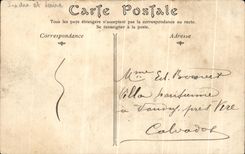 Indre et Loire
Carte Postale
Tous les pays étrangers n'acceptent pas la correspondance au recto.
Se renseigner à la poste.
Correspondance
Adresse
Mme Ed.
Villa Parisienne
à Vaudry près Vire
Calvados